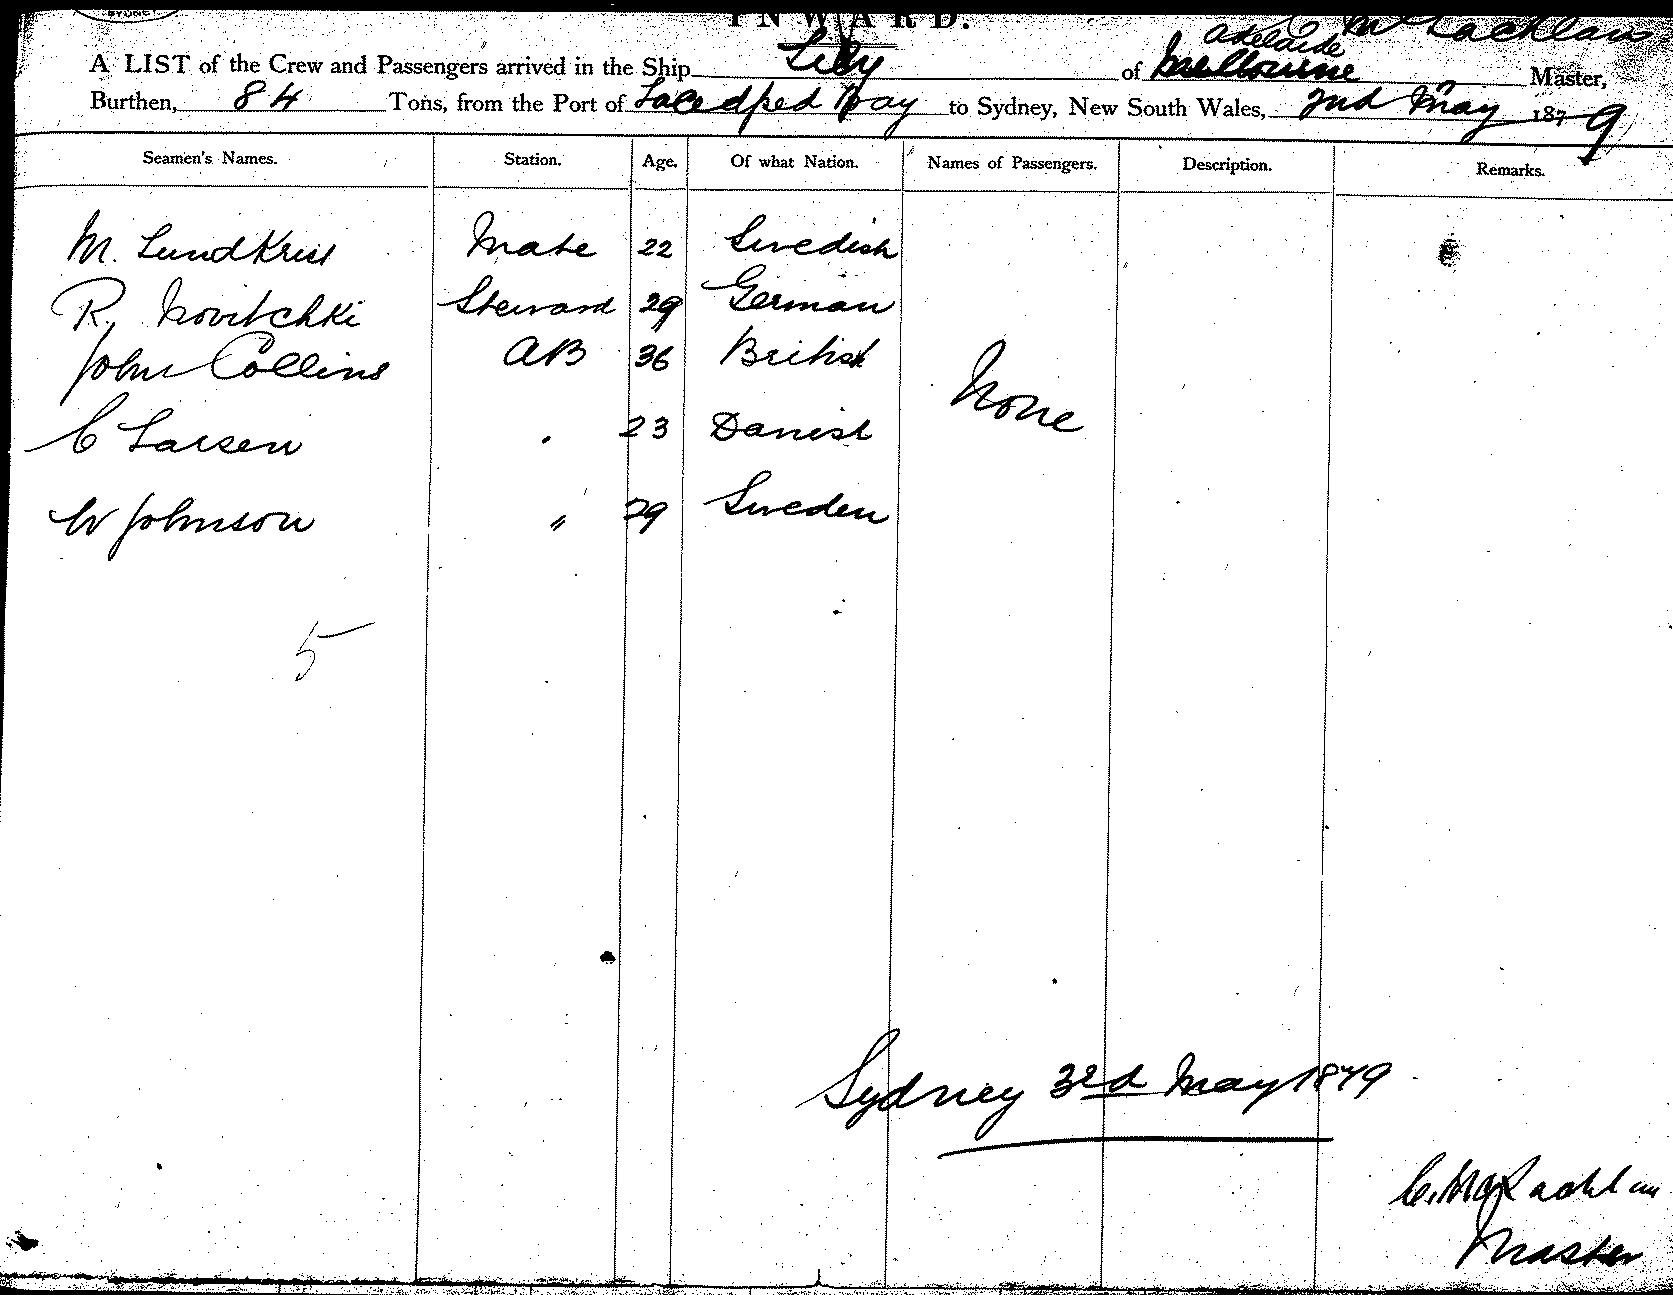 SYDNEY
INWARD.
C McLachlan
Adelaide
A LIST of the Crew and Passengers arrived in the Ship Lily of Melbourne Master,
Burthen, 84 Tons, from the Port of Lacedped Bay to Sydney, New South Wales, 2nd May 1879
Seamen's Names. Station. Age. Of what Nation. Names of Passengers. Description. Remarks.
M. Lundkrist Mate 22 Swedish
R. Novitchki Steward 29 German
John Collins AB 36 British
None
C Larsen " 23 Danish
W Johnson " 29 Sweden
5
Sydney 3rd May 1879
C. McLachlan
Master